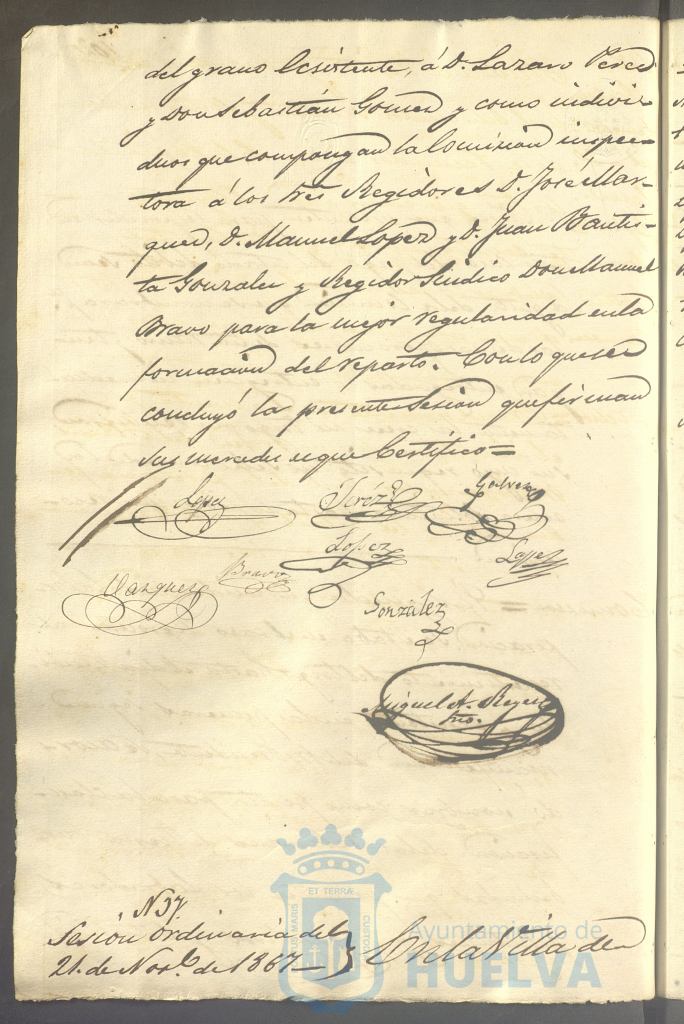 del grano Existente, á D. Lazaro Perez
y Don Sebastián Gomez y como indivi-
duos que compongan la Comision inspec-
tora á los tres Regidores D. José Mar-
quez, D. Manuel Lopez y D. Juan Bautis-
ta Gonzalez y Regidor Sindico Don Manuel
Bravo para la mejor regularidad en la
formacion del reparto. Con lo que se
concluyó la presente Sesion que firman
sus mercedes de que Certifico=
Lepe Peréz Galvez
Lopez Lopez
Vazquez Bravo
González
Miguel A. Reyes
Srio.
N 37
Sesion Ordinaria del
21 de Nov.e de 1867
En la Villa de
ET TERRÆ
PORTUS MARIS
CUSTODIA
Ayuntamiento de
HUELVA